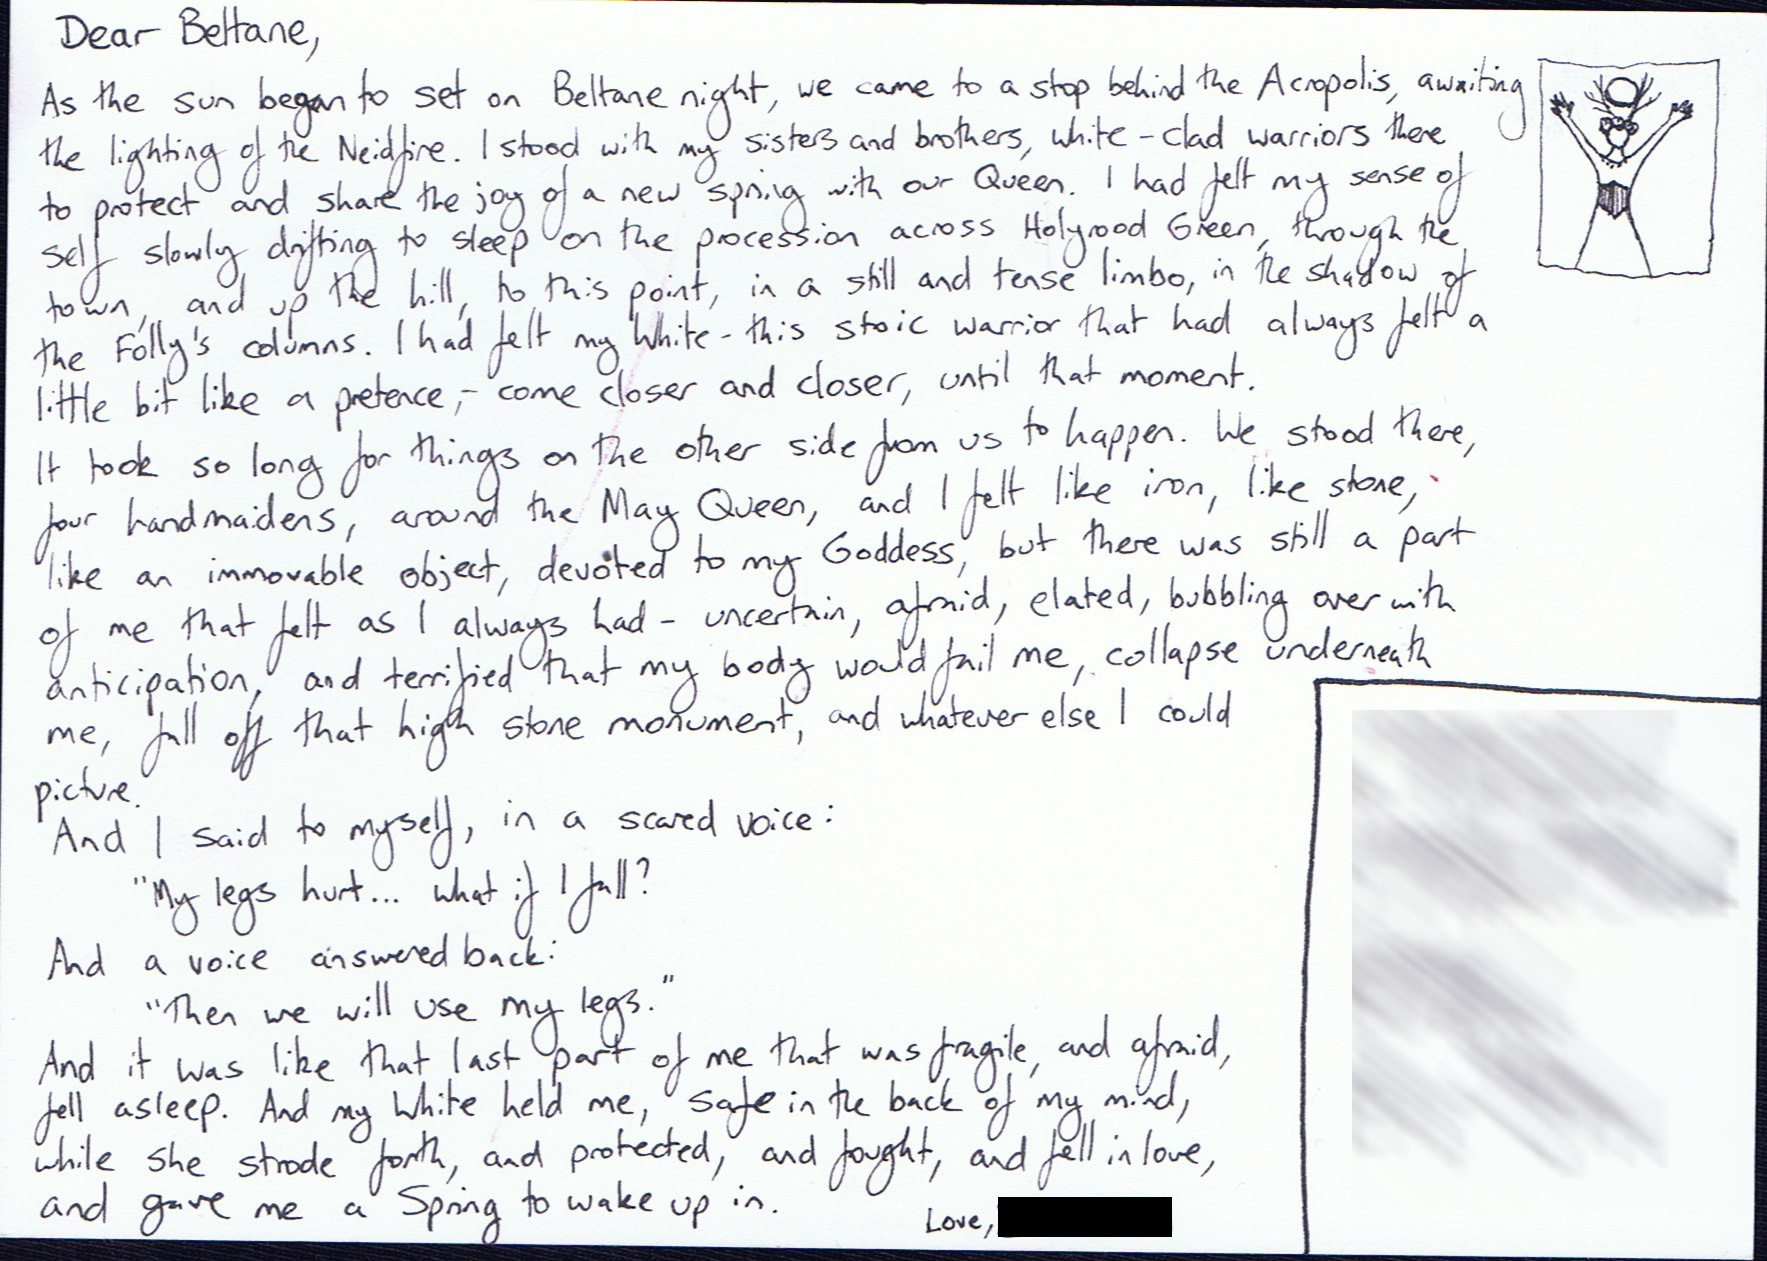 Dear Beltane,
As the sun began to set on Beltane night, we came to a stop behind the Acropolis, awaiting
the lighting of the Neidfire. I stood with my sisters and brothers, white-clad warriors there
to protect and share the joy of a new spring with our Queen. I had felt my sense of
self slowly drifting to sleep on the procession across Holyrood Green, through the
town, and up the hill, to this point, in a still and tense limbo, in the shadow of
the Folly's columns. I had felt my White - this stoic warrior that had always felt a
little bit like a pretence, - come closer and closer, until that moment.
It took so long for things on the other side from us to happen. We stood there,
four handmaidens, around the May Queen, and I felt like iron, like stone,
like an immovable object, devoted to my Goddess, but there was still a part
of me that felt as I always had - uncertain, afraid, elated, bubbling over with
anticipation, and terrified that my body would fail me, collapse underneath
me, fall off that high stone monument, and whatever else I could
picture.
And I said to myself, in a scared voice:
"My legs hurt... what if I fall?
And a voice answered back:
"Then we will use my legs."
And it was like that last part of me that was fragile, and afraid,
fell asleep. And my White held me, safe in the back of my mind,
while she strode forth, and protected, and fought, and fell in love,
and gave me a Spring to wake up in.
Love,